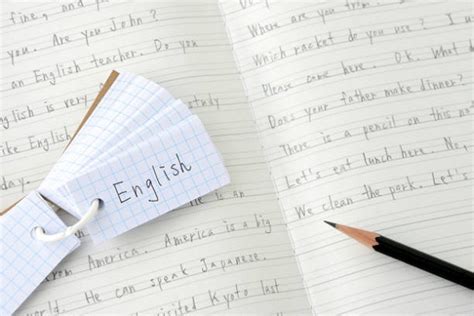 fine, and
you. Are you John?
an English teacher. Do you
English is very study
like English
day.
English
from America. America is a big
world. He can speak Japanese.
visited Kyoto last
Where are you from?
Which racket do you use? I
Please come here. Ok. What
Does your father make dinner?
There is a pencil on this
Let's eat lunch here. No,
We clean the park. Let's